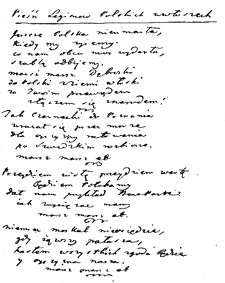 Pieśń Legionów Polskich we Włoszech
Jeszcze Polska nie umarła,
kiedy my żyjemy
co nam obca moc wydarła,
szablą odbijemy.
marsz marsz Dąbrowski
do Polski z ziemi włoski
za Twoim przewodem
złączem się z narodem
Jak Czarnecki do Poznania
wracał się przez morze
dla ojczyzny ratowania
po szwedzkim rozbiorze.
marsz marsz etc.
Przejdziem Wisłę przejdziem Wartę
będziem Polakami
dał nam przykład Bonaparte
jak zwyciężać mamy
marsz marsz etc.
Niemiec Moskal nie osiędzie,
gdy jąwszy pałasza,
hasłem wszystkich zgoda będzie
y ojczyzna nasza.
marsz marsz etc.